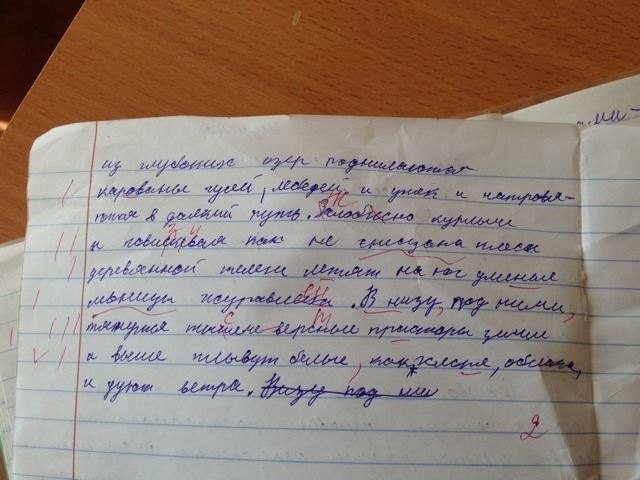 из глубоких озер поднимаются
карованы гусей, лебедей и уток и направля-
ются в далний путь. Жалобно курлыча
и повизгивая как не смозана плоск
деревянной телеги летят на юг уменые
моницы журавлей. В низу, под ними,
тянутся тысяче верстные прасторы земли
а выше плывут белые, как, облака,
и дуют ветра. Внизу под ни
2